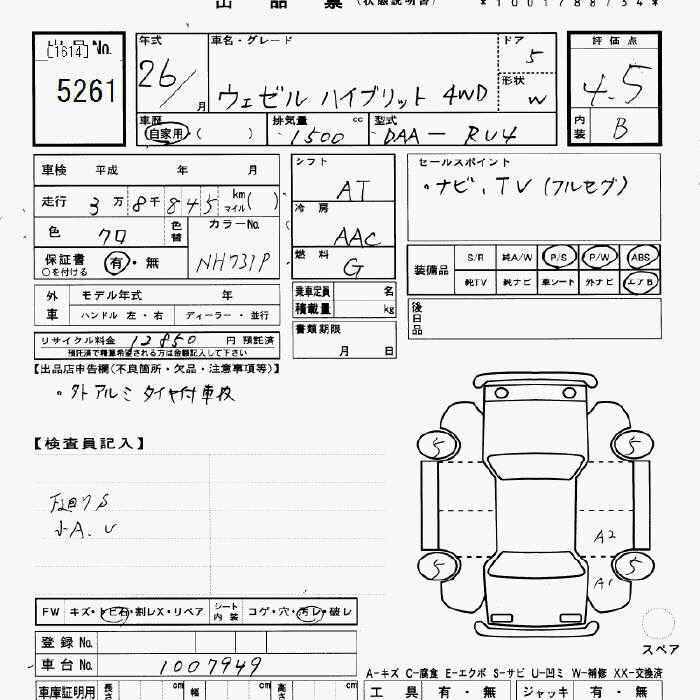 出品票 (状態説明書) *1001788734*
出品No. [1614] 5261
年式 26/ 月
車名・グレード ウェゼル ハイブリット 4WD
ドア 5
形状 W
評価点 4.5
内装 B
車歴 自家用 ( )
排気量 cc 1500
型式 DAA-RU4
車検 平成 年 月
走行 3万8千845 km マイル( )
色 クロ 色替
カラーNo. NH731P
保証書 ○を付ける 有・無
シフト AT
冷房 AAC
燃料 G
セールスポイント
・ナビ、TV (フルセグ)
装備品 S/R 純A/W P/S P/W ABS
純TV 純ナビ 車シート 外ナビ エアB
外車 モデル年式 年
ハンドル 左・右 ディーラー・並行
乗車定員 名
積載量 kg
後日品
リサイクル料金 12850 円 預託済
預託済で精算希望される方は金額記入して下さい
書類期限 月 日
【出品店申告欄(不良箇所・欠品・注意事項等)】
・外アルミ タイヤ付車検
【検査員記入】
小A、U
5 5
A2
5 5
A1
スペア
FW キズ・トビ石・割レX・リペア シート内装 コゲ・穴・汚レ・破レ
登録No.
車台No. 1007949
A-キズ C-腐食 E-エクボ S-サビ U-凹ミ W-補修 XX-交換済
車庫証明用 長さ cm 幅 cm 高さ cm
工具 有・無 ジャッキ 有・無